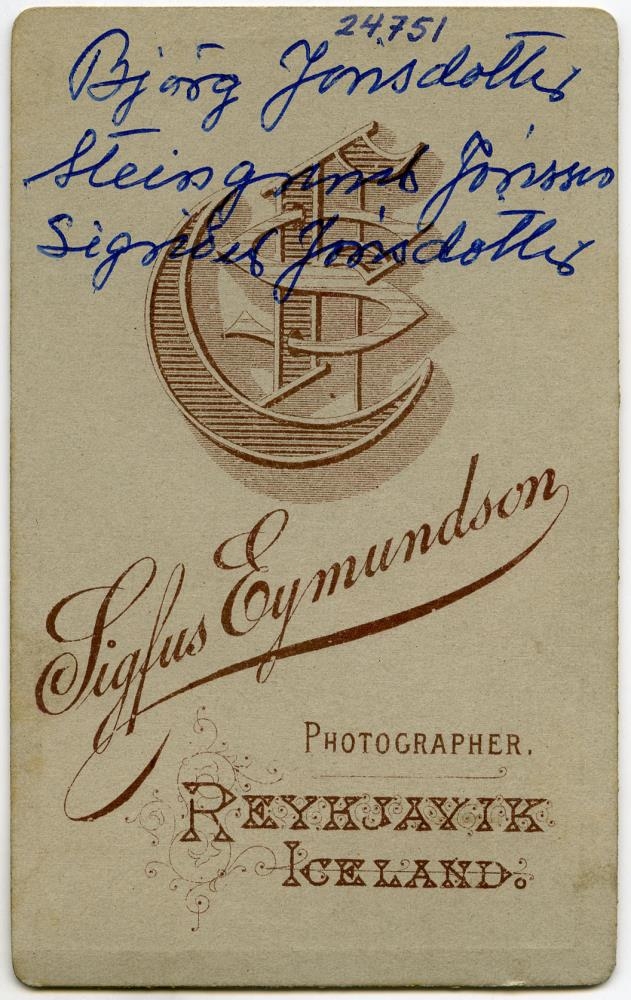 24751
Björg Jónsdóttir
Steingrímur Jónsson
Sigríður Jónsdóttir
Sigfus Eymundson
PHOTOGRAPHER.
REYKJAVIK
ICELAND.